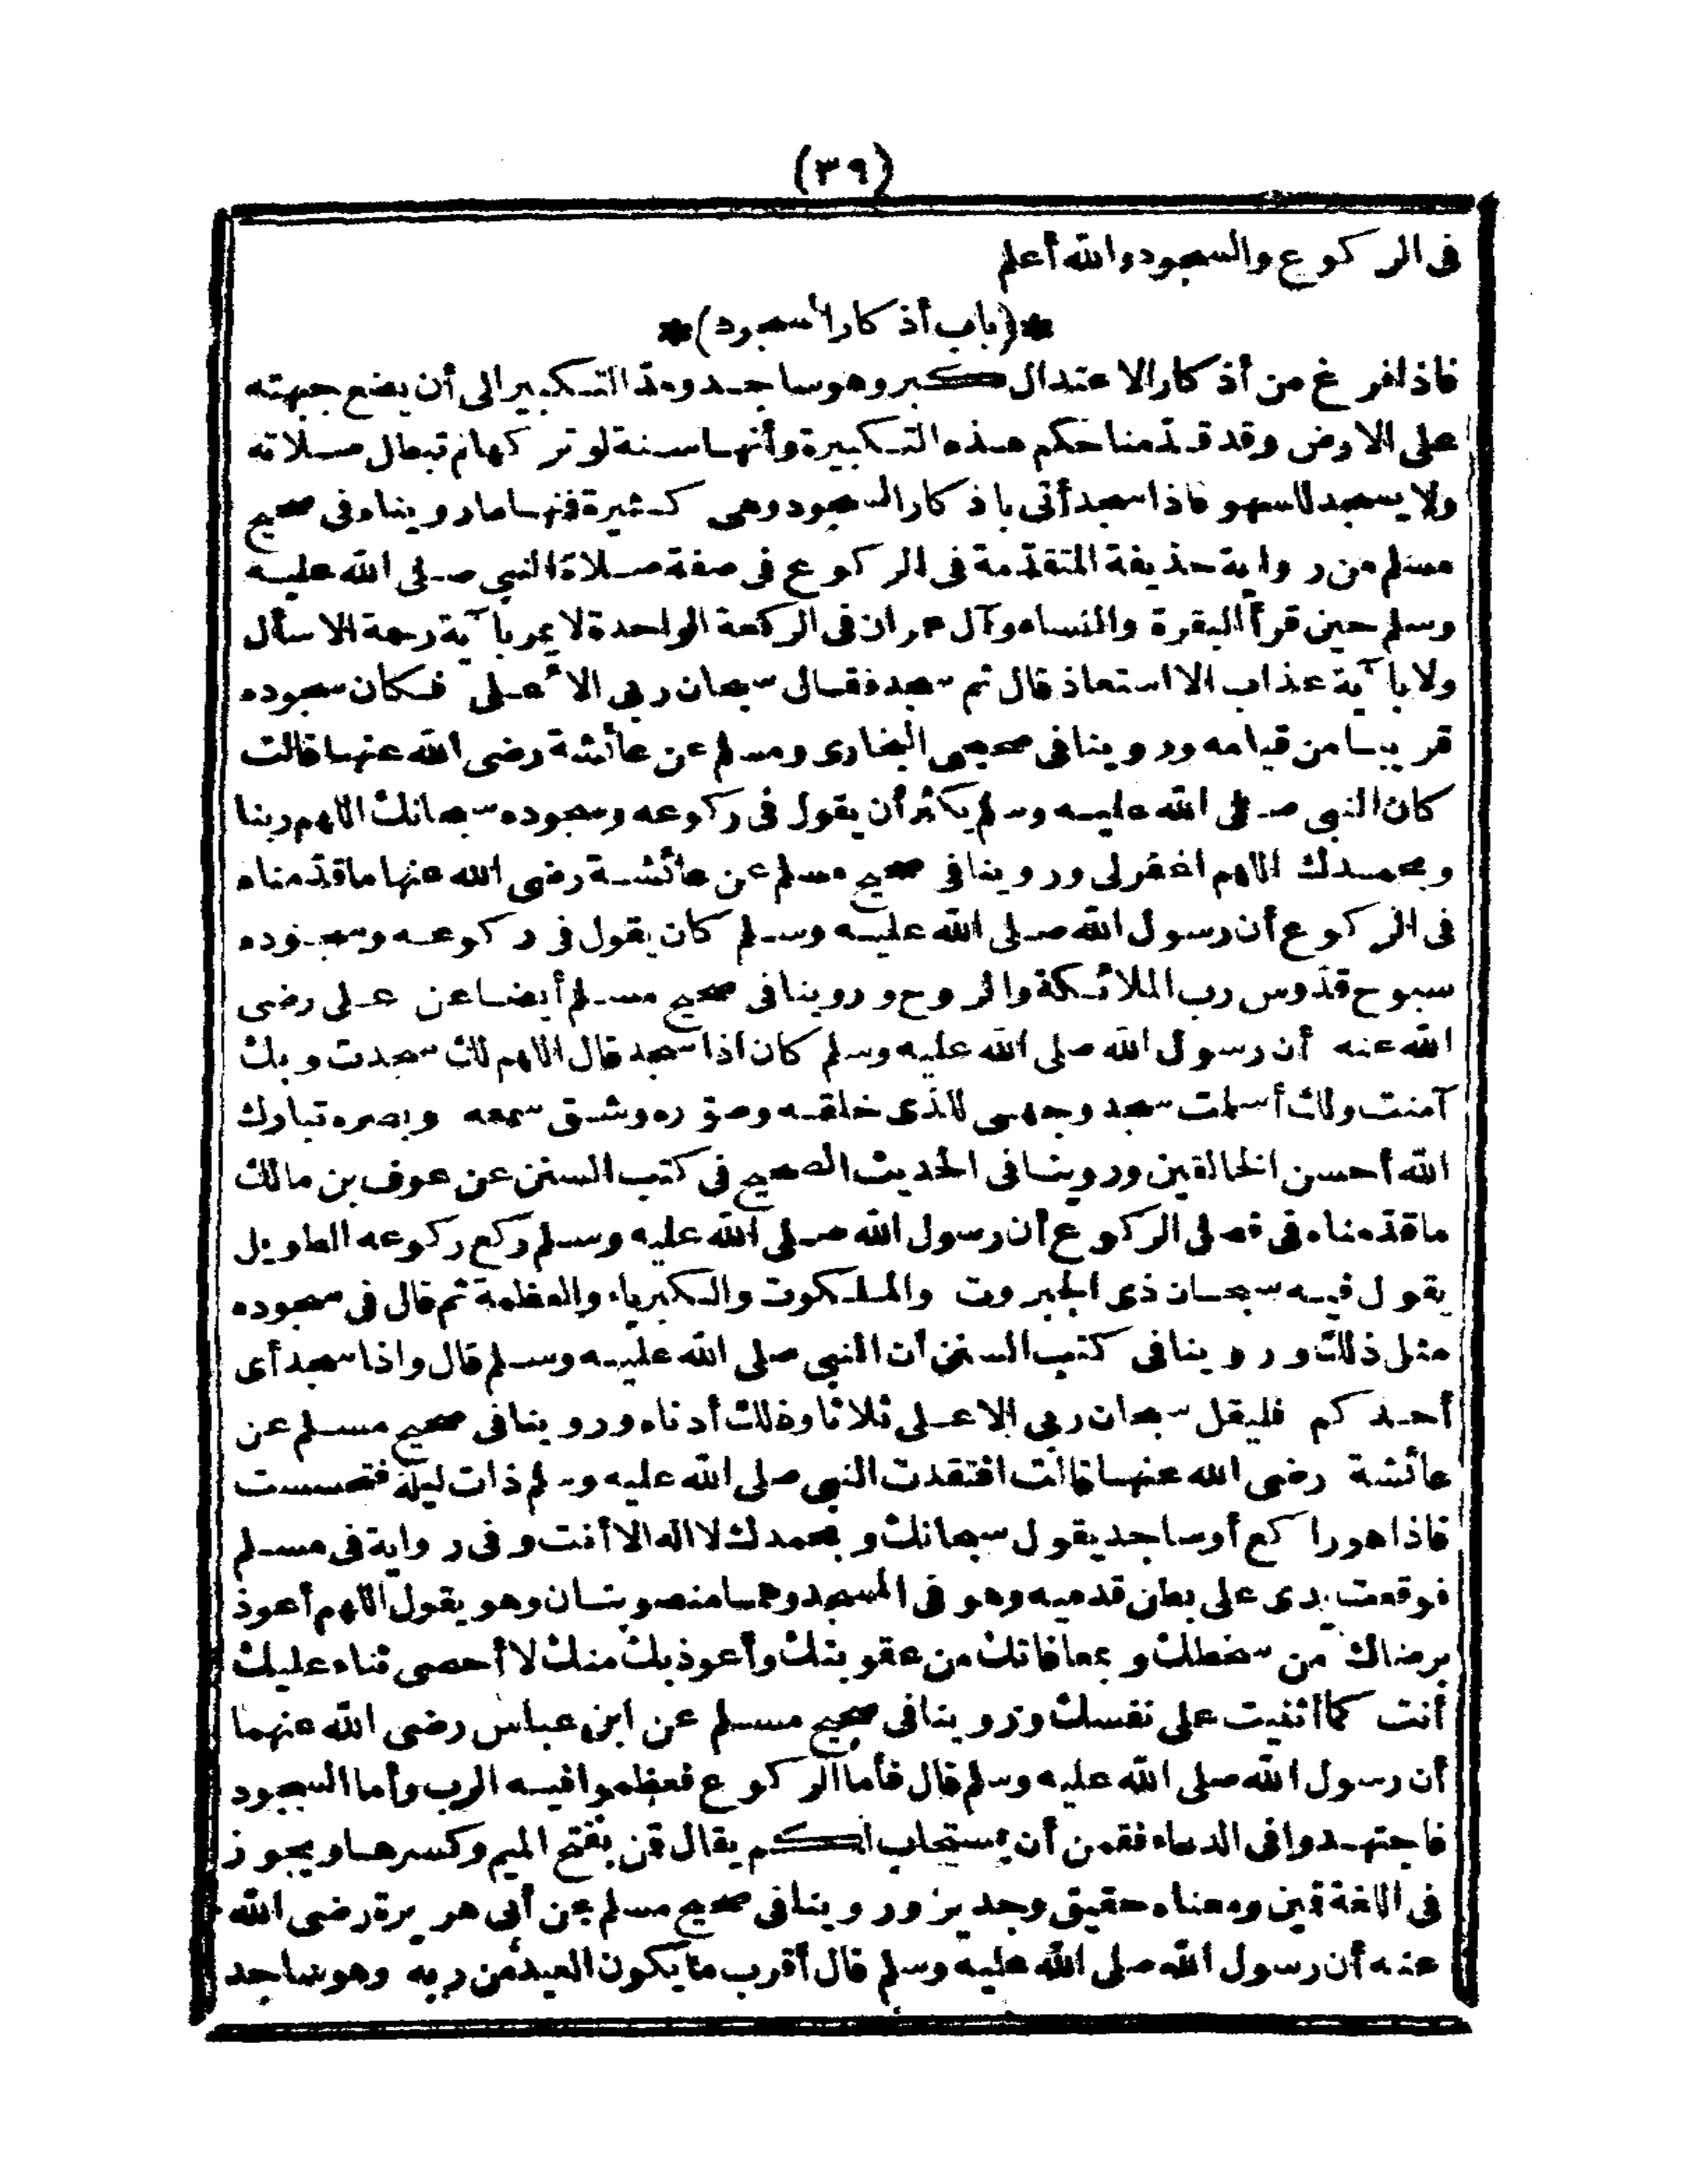 (٣٩)
فى الركوع والسجود والله أعلم
*(باب أذكار السجود)*
فاذا فرغ من أذكار الاعتدال كبر وهو ساجد ومد التكبير الى أن يضع جبهته
على الارض وقد قدّمنا حكم هذه التكبيرة وأنها سنة لو تركها لم تبطل صلاته
ولا يسجد للسهو فاذا سجد أتى باذكار السجود وهى كثيرة فنها ما رويناه فى صحيح
مسلم من رواية حذيفة المتقدّمة فى الركوع فى صفة صلاة النبي صلى الله عليه
وسلم حين قرأ البقرة والنساء وآل عمران فى الركعة الواحدة لا يمر باآية رحمة الا سأل
ولا باآية عذاب الا استعاذ قال ثم سجد فقال سبحان ربى الاعلى فكان سجوده
قريبا من قيامه وروينا فى صحيحى البخارى ومسلم عن عائشة رضى الله عنها قالت
كان النبى صلى الله عليه وسلم يكثر أن يقول فى ركوعه وسجوده سبحانك اللهم ربنا
وبحمدك اللهم اغفرلى وروينا فى صحيح مسلم عن عائشة رضى الله عنها ما قدّمناه
فى الركوع أن رسول الله صلى الله عليه وسلم كان يقول فى ركوعه وسجوده
سبوح قدّوس رب الملائكة والروح وروينا فى صحيح مسلم أيضا عن على رضى
الله عنه أن رسول الله صلى الله عليه وسلم كان اذا سجد قال اللهم لك سجدت وبك
آمنت ولك أسلمت سجد وجهى للذى خلقه وصوّره وشق سمعه وبصره تبارك
الله أحسن الخالقين وروينا فى الحديث الصحيح فى كتب السنن عن عوف بن مالك
ما قدّمناه فى فصل الركوع أن رسول الله صلى الله عليه وسلم ركع ركوعه الطويل
يقول فيه سبحان ذى الجبروت والملكوت والكبرياء والعظمة ثم قال فى سجوده
مثل ذلك وروينا فى كتب السنن أن النبي صلى الله عليه وسلم قال واذا سجد أى
أحدكم فليقل سبحان ربى الاعلى ثلاثا وذلك أدناه وروينا فى صحيح مسلم عن
عائشة رضى الله عنها قالت افتقدت النبى صلى الله عليه وسلم ذات ليلة فتحسست
فاذا هو راكع أو ساجد يقول سبحانك وبحمدك لا اله الا أنت وفى رواية فى مسلم
فوقعت يدى على بطن قدميه وهو فى المسجد وهما منصوبتان وهو يقول اللهم أعوذ
برضاك من سخطك وبمعافاتك من عقوبتك وأعوذ بك منك لا أحصى ثناء عليك
أنت كما أثنيت على نفسك وروينا فى صحيح مسلم عن ابن عباس رضى الله عنهما
أن رسول الله صلى الله عليه وسلم قال فأما الركوع فعظموا فيه الرب وأما السجود
فاجتهدوا فى الدعاء فقمن أن يستجاب لكم يقال قن بفتح الميم وكسرها ويجوز
فى اللغة قمين ومعناه حقيق وجدير وروينا فى صحيح مسلم عن أبى هريرة رضى الله
عنه أن رسول الله صلى الله عليه وسلم قال أقرب ما يكون العبد من ربه وهو ساجد